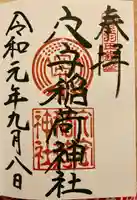 奉拝
穴守稲荷神社
令和元年九月八日